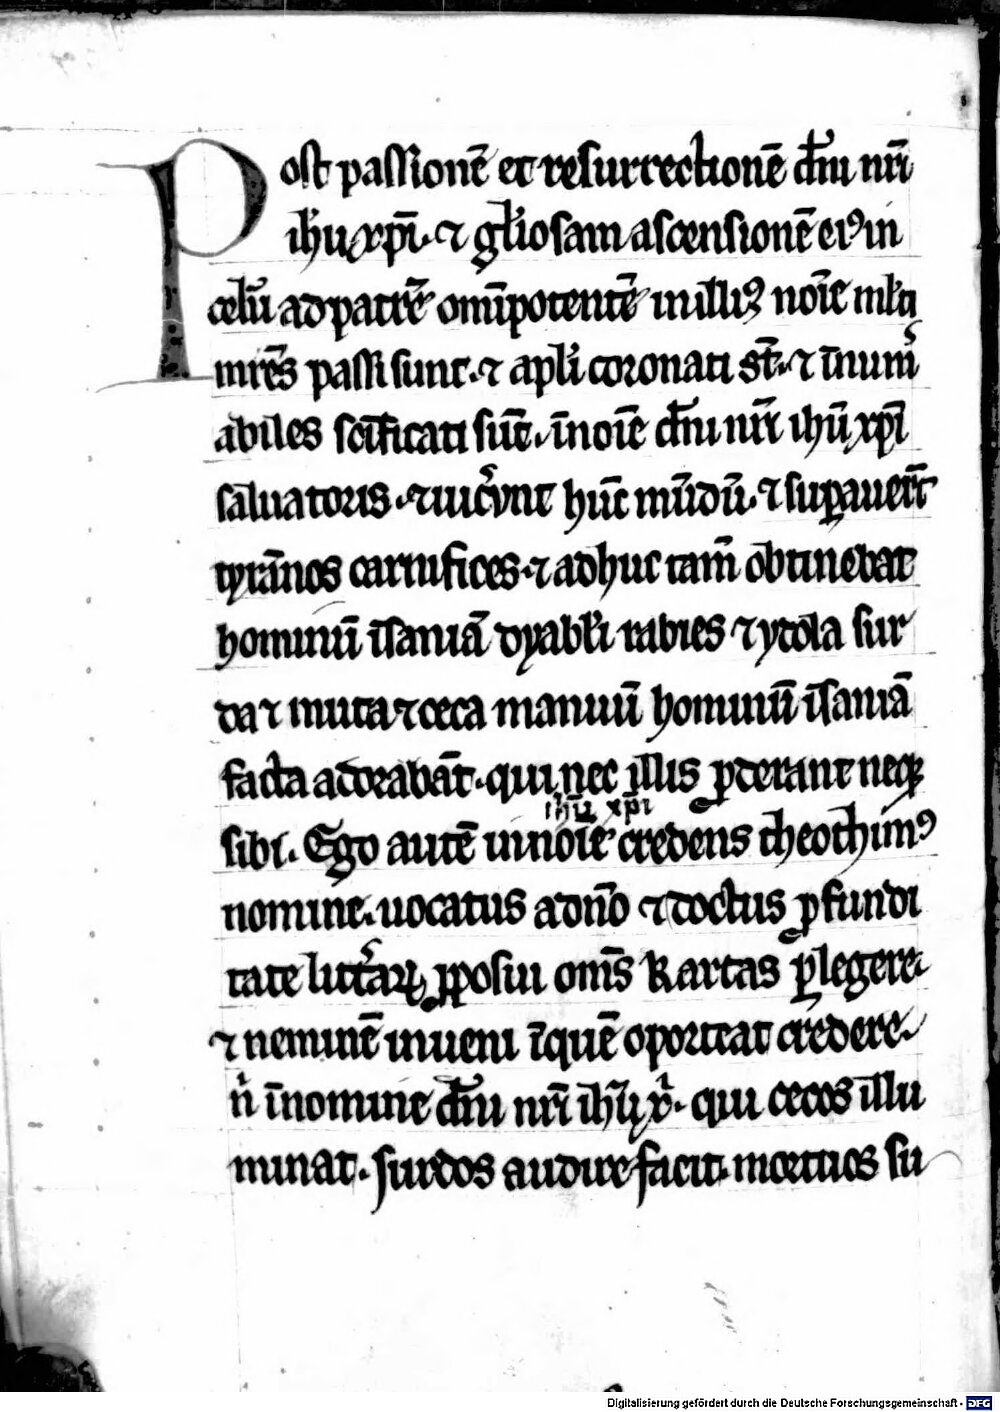 Post passionē et resurrectionē dn̄i nr̄i
ih'u xp̄i. ⁊ gl'iosam ascensionē eiꝰ in
celū ad patrē om̄ipotentē in illiꝰ noīe ml'ti
mr̄es passi sunt. ⁊ apl'i coronati st̄. ⁊ īnum
abiles sc̄ificati sūt. ī noīe dn̄i nr̄i ihū xp̄i
saluatoris. ⁊ uic͛unt hūc mūdū. ⁊ suꝑauer̄t
tyrānos carnifices. ⁊ adhuc tam̄ obtinebat
hominū īsaniā dyabl'i rabies ⁊ ydola sur
da ⁊ muta ⁊ ceca manuū hominū īsaniā
facta adorabāt. qui nec illis ꝓderant neqꝫ
ihū xp̄i
sibi. Ego autē in noīe credens theothimꝰ
nomine. uocatus a dn̄o ⁊ doctus ꝓfundi
tate litt͛aꝝ ꝓposui om̄s kartas ꝑlegere
⁊ neminē inueni ī quē oporteat credere
n̍ ī nomine dn̄i nr̄i ih'u x̄. qui cecos illu
minat. surdos audire facit. mortuos su
Digitalisierung gefördert durch die Deutsche Forschungsgemeinschaft - DFG